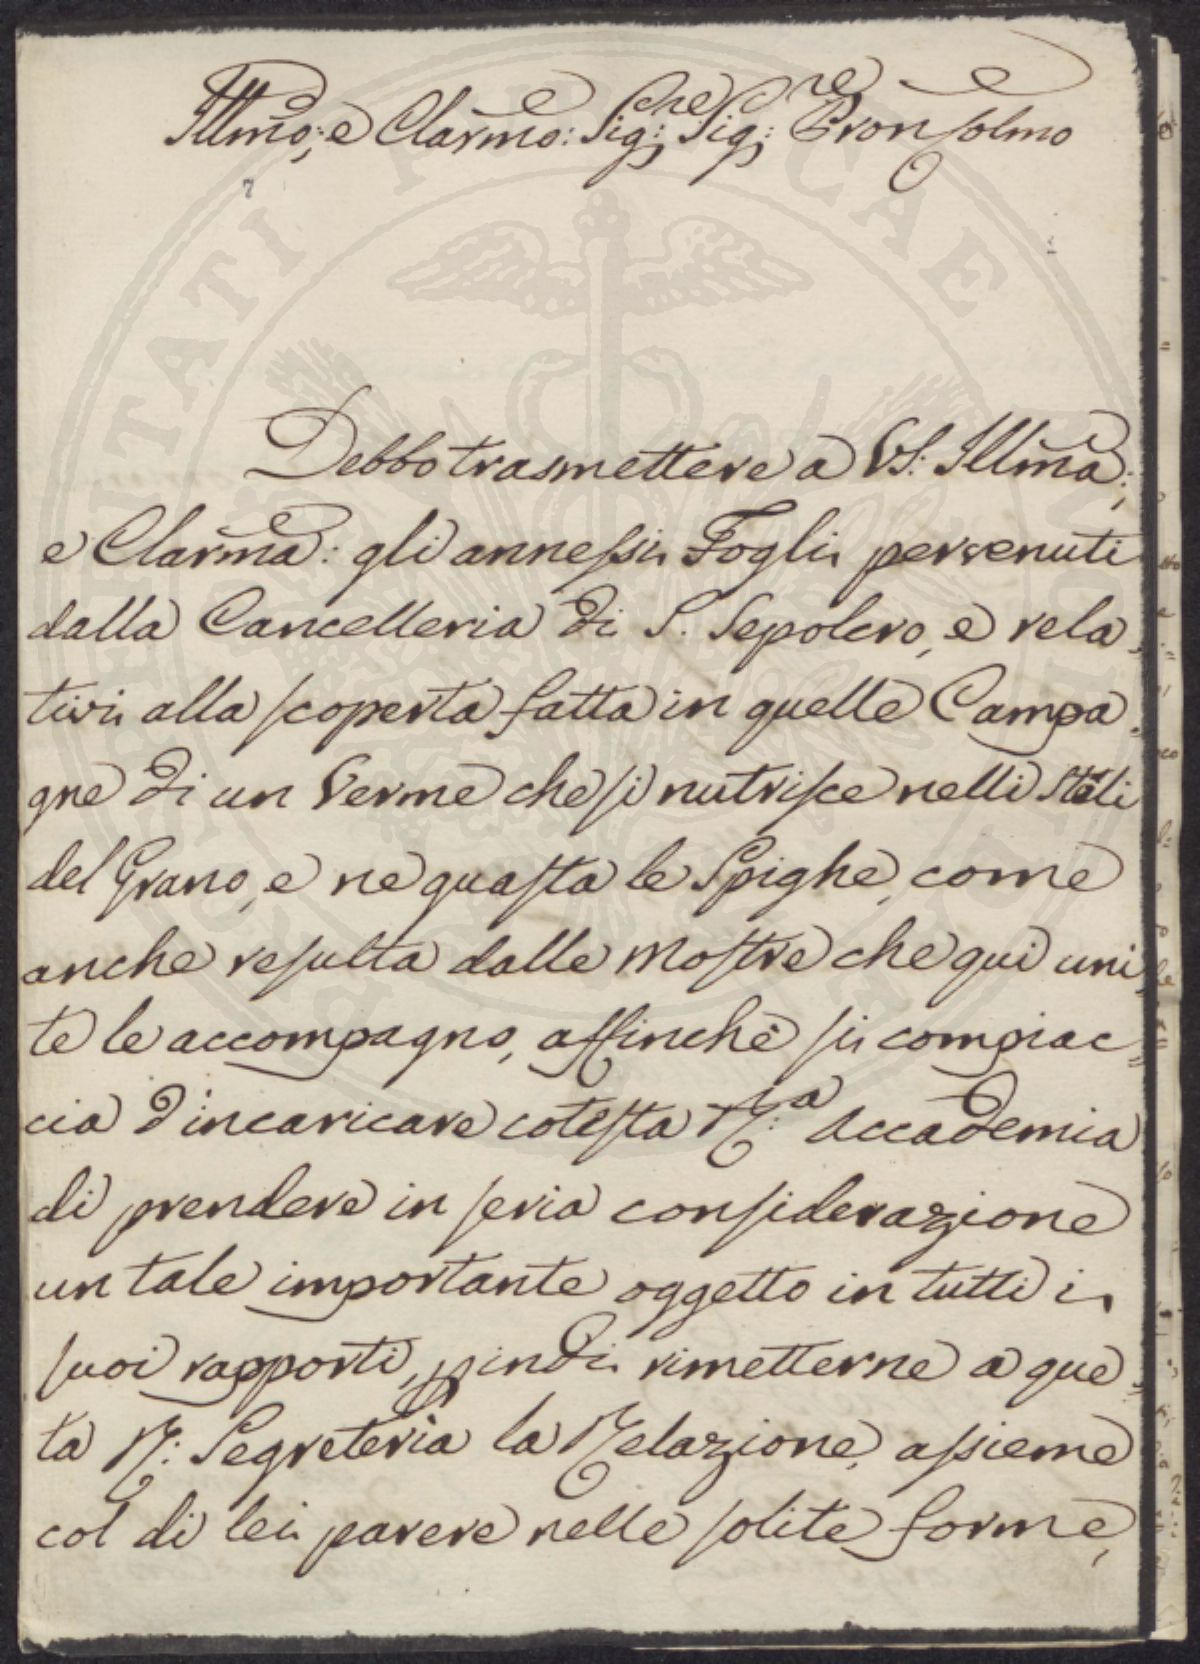 Illmo: e Clarmo: Sig:re Sig:re Pron Colmo
Debbo trasmettere a VS: Illma:
e Clarma: gli annessi Fogli pervenuti
dalla Cancelleria di S. Sepolcro, e rela=
tivi alla scoperta fatta in quelle Campa=
gne di un Verme che si nutrisce nelli Steli
del Grano, e ne guasta le Spighe, come
anche resulta dalle Mostre che qui uni=
te le accompagno, affinchè si compiac=
cia d'incaricare cotesta R:a Accademia
di prendere in seria considerazione
un tale importante oggetto in tutti i
suoi rapporti, p indi rimetterne a que=
ta R: Segreteria la Relazione, assieme
col di lei parere nelle solite forme,